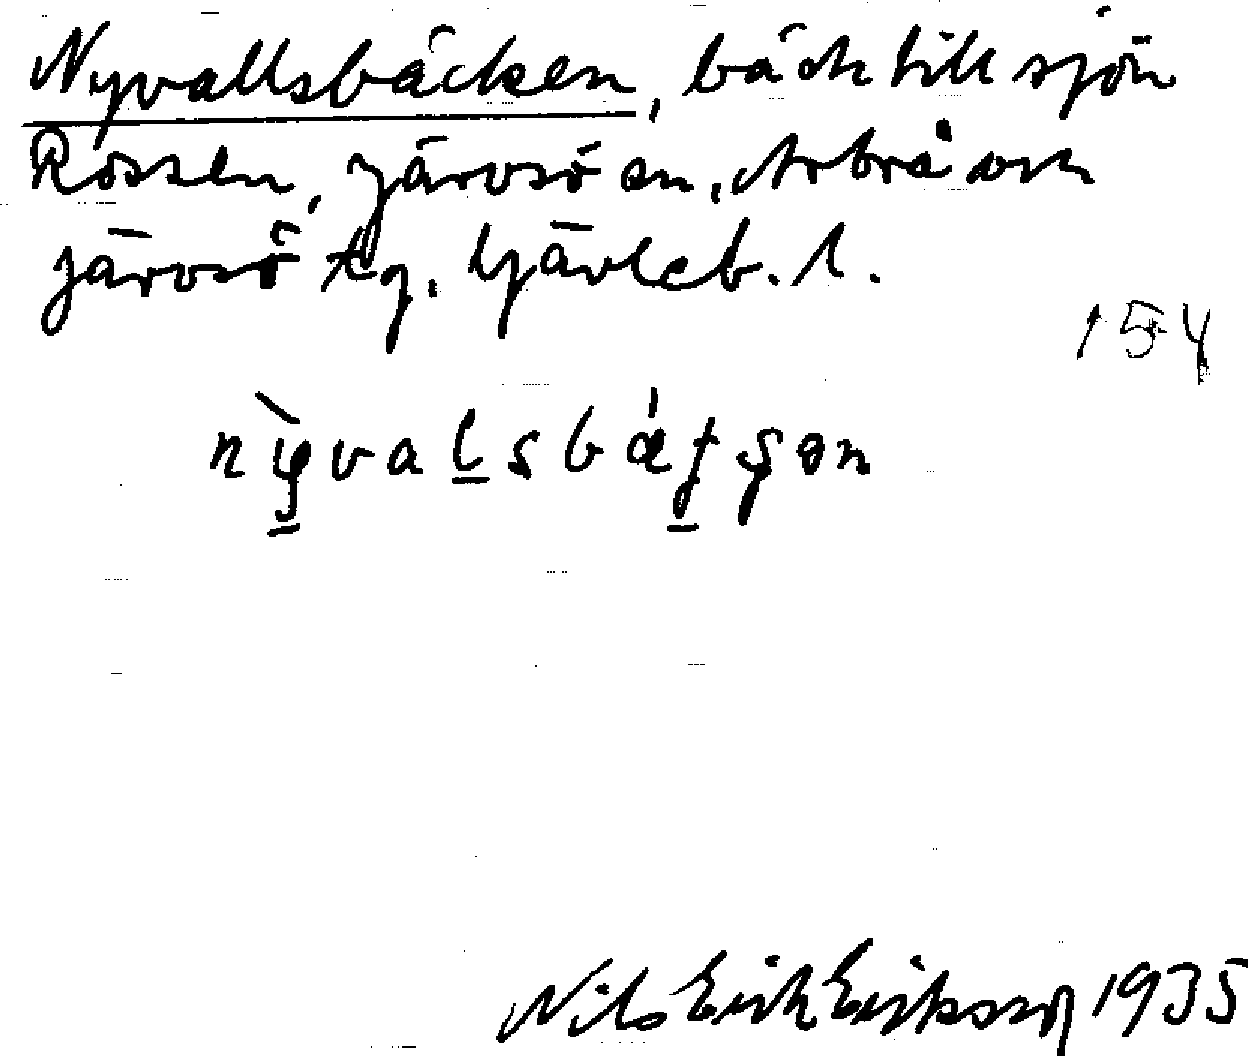 Nyvallsbäcken, bäck till sjön
Rossen, Järvsö sn, Arbrå och
Järvsö tg. Gävleb. l.
154
Nils Erik Eriksson 1935